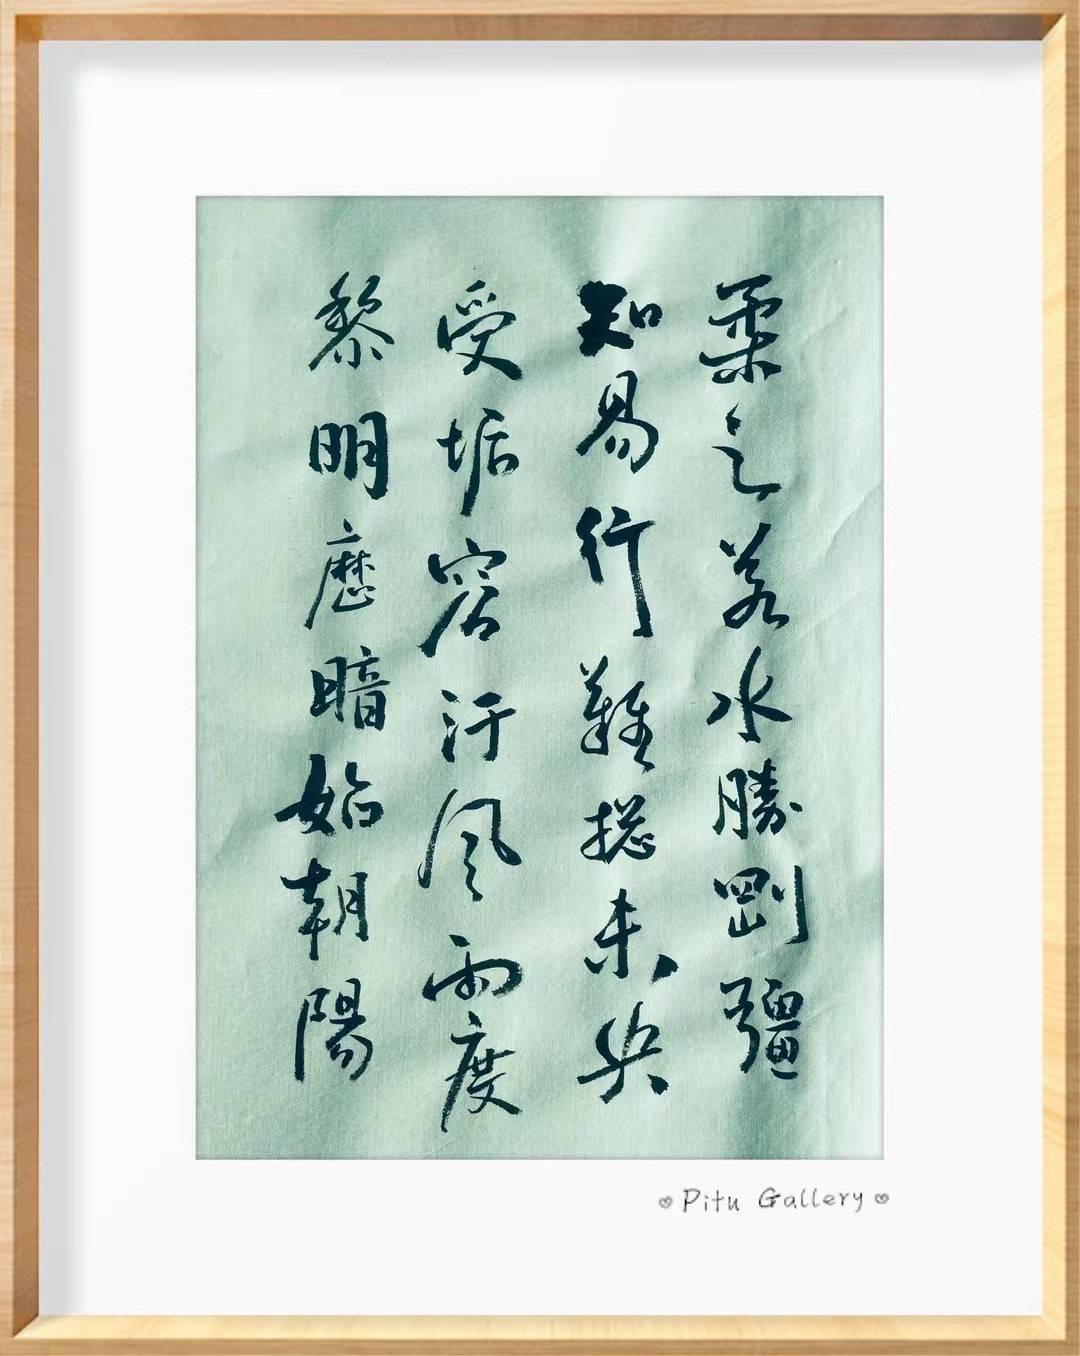 柔之若水勝剛彊
知易行難摠未央
受垢容汙風雨度
黎明歷暗始朝陽
Pitu Gallery